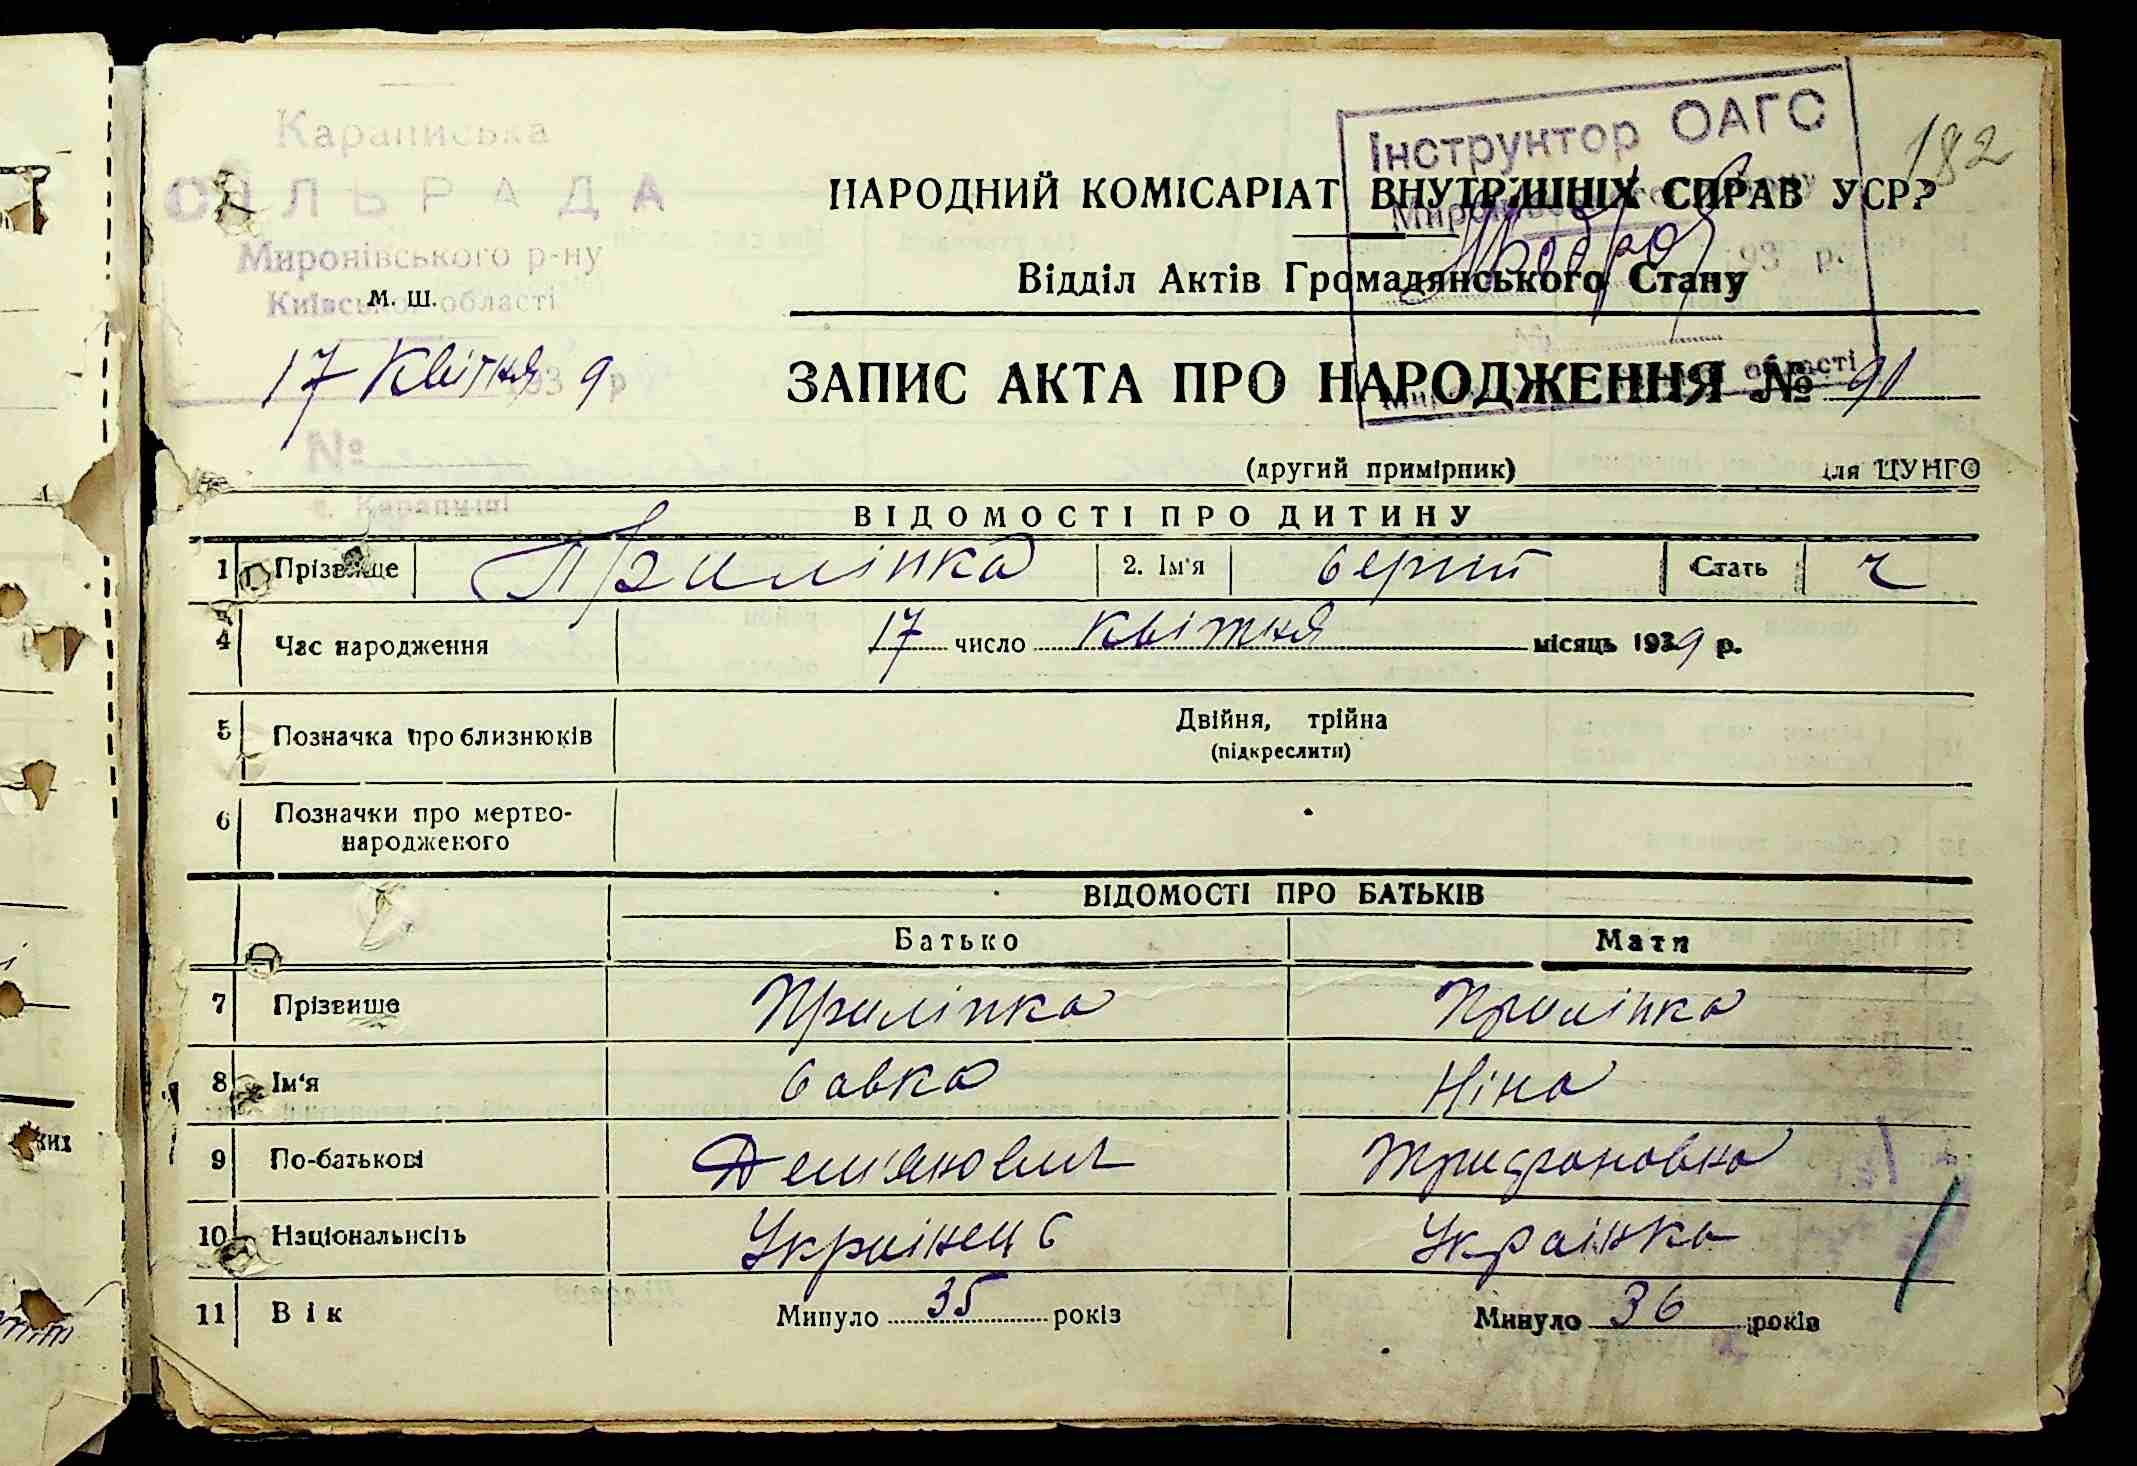 182
Караписька
СІЛЬРАДА
Миронівського р-ну
Київської області
м. ш.
17 Квітня 1939 р
№
с. Карапиші
Інструктор ОАГС
193 р.
області
НАРОДНИЙ КОМІСАРІАТ ВНУТРІШНІХ СПРАВ УСРР
Відділ Актів Громадянського Стану
ЗАПИС АКТА ПРО НАРОДЖЕННЯ № 91
(другий примірник) для ЦУНГО
ВІДОМОСТІ ПРО ДИТИНУ
1 Прізвище Приліпка 2. Ім'я Сергій Стать ч
4 Час народження 17 число Квітня місяць 1939 р.
5 Позначка про близнюків Двійня, трійна
(підкреслити)
6 Позначки про мертво-
народженого
ВІДОМОСТІ ПРО БАТЬКІВ
Батько Мати
7 Прізвище Приліпка Приліпка
8 Ім'я Савка Ніна
9 По-батькові Дем'янович Трифоновна
10 Національність Украінець Украінка
11 Вік Минуло 35 років Минуло 36 років